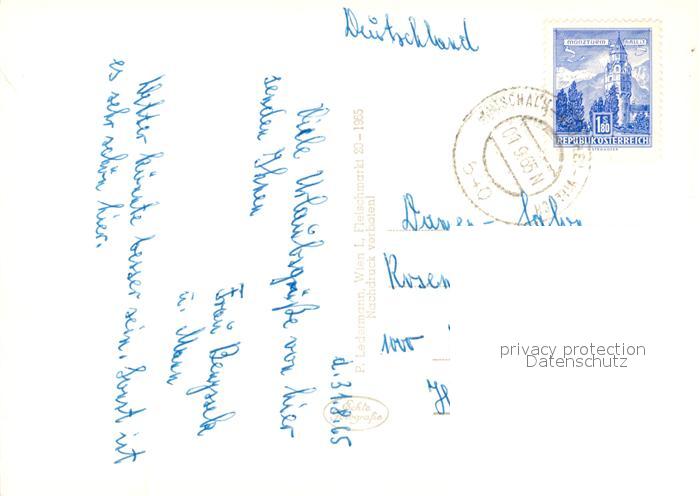 Deutschland
MÜNZTURM HALL i. T.
S 1.80
REPUBLIK ÖSTERREICH
540
Damen-
Rosen
1000
d. 31.8.65
Viele Urlaubsgrüße von hier
senden Ihnen
Frau
u. Mann
Wetter könnte besser sein. Sonst ist
es sehr schön hier.
P. Ledermann, Wien I., Fleischmarkt 20 - 1965
Nachdruck verboten!
Echte
privacy protection
Datenschutz